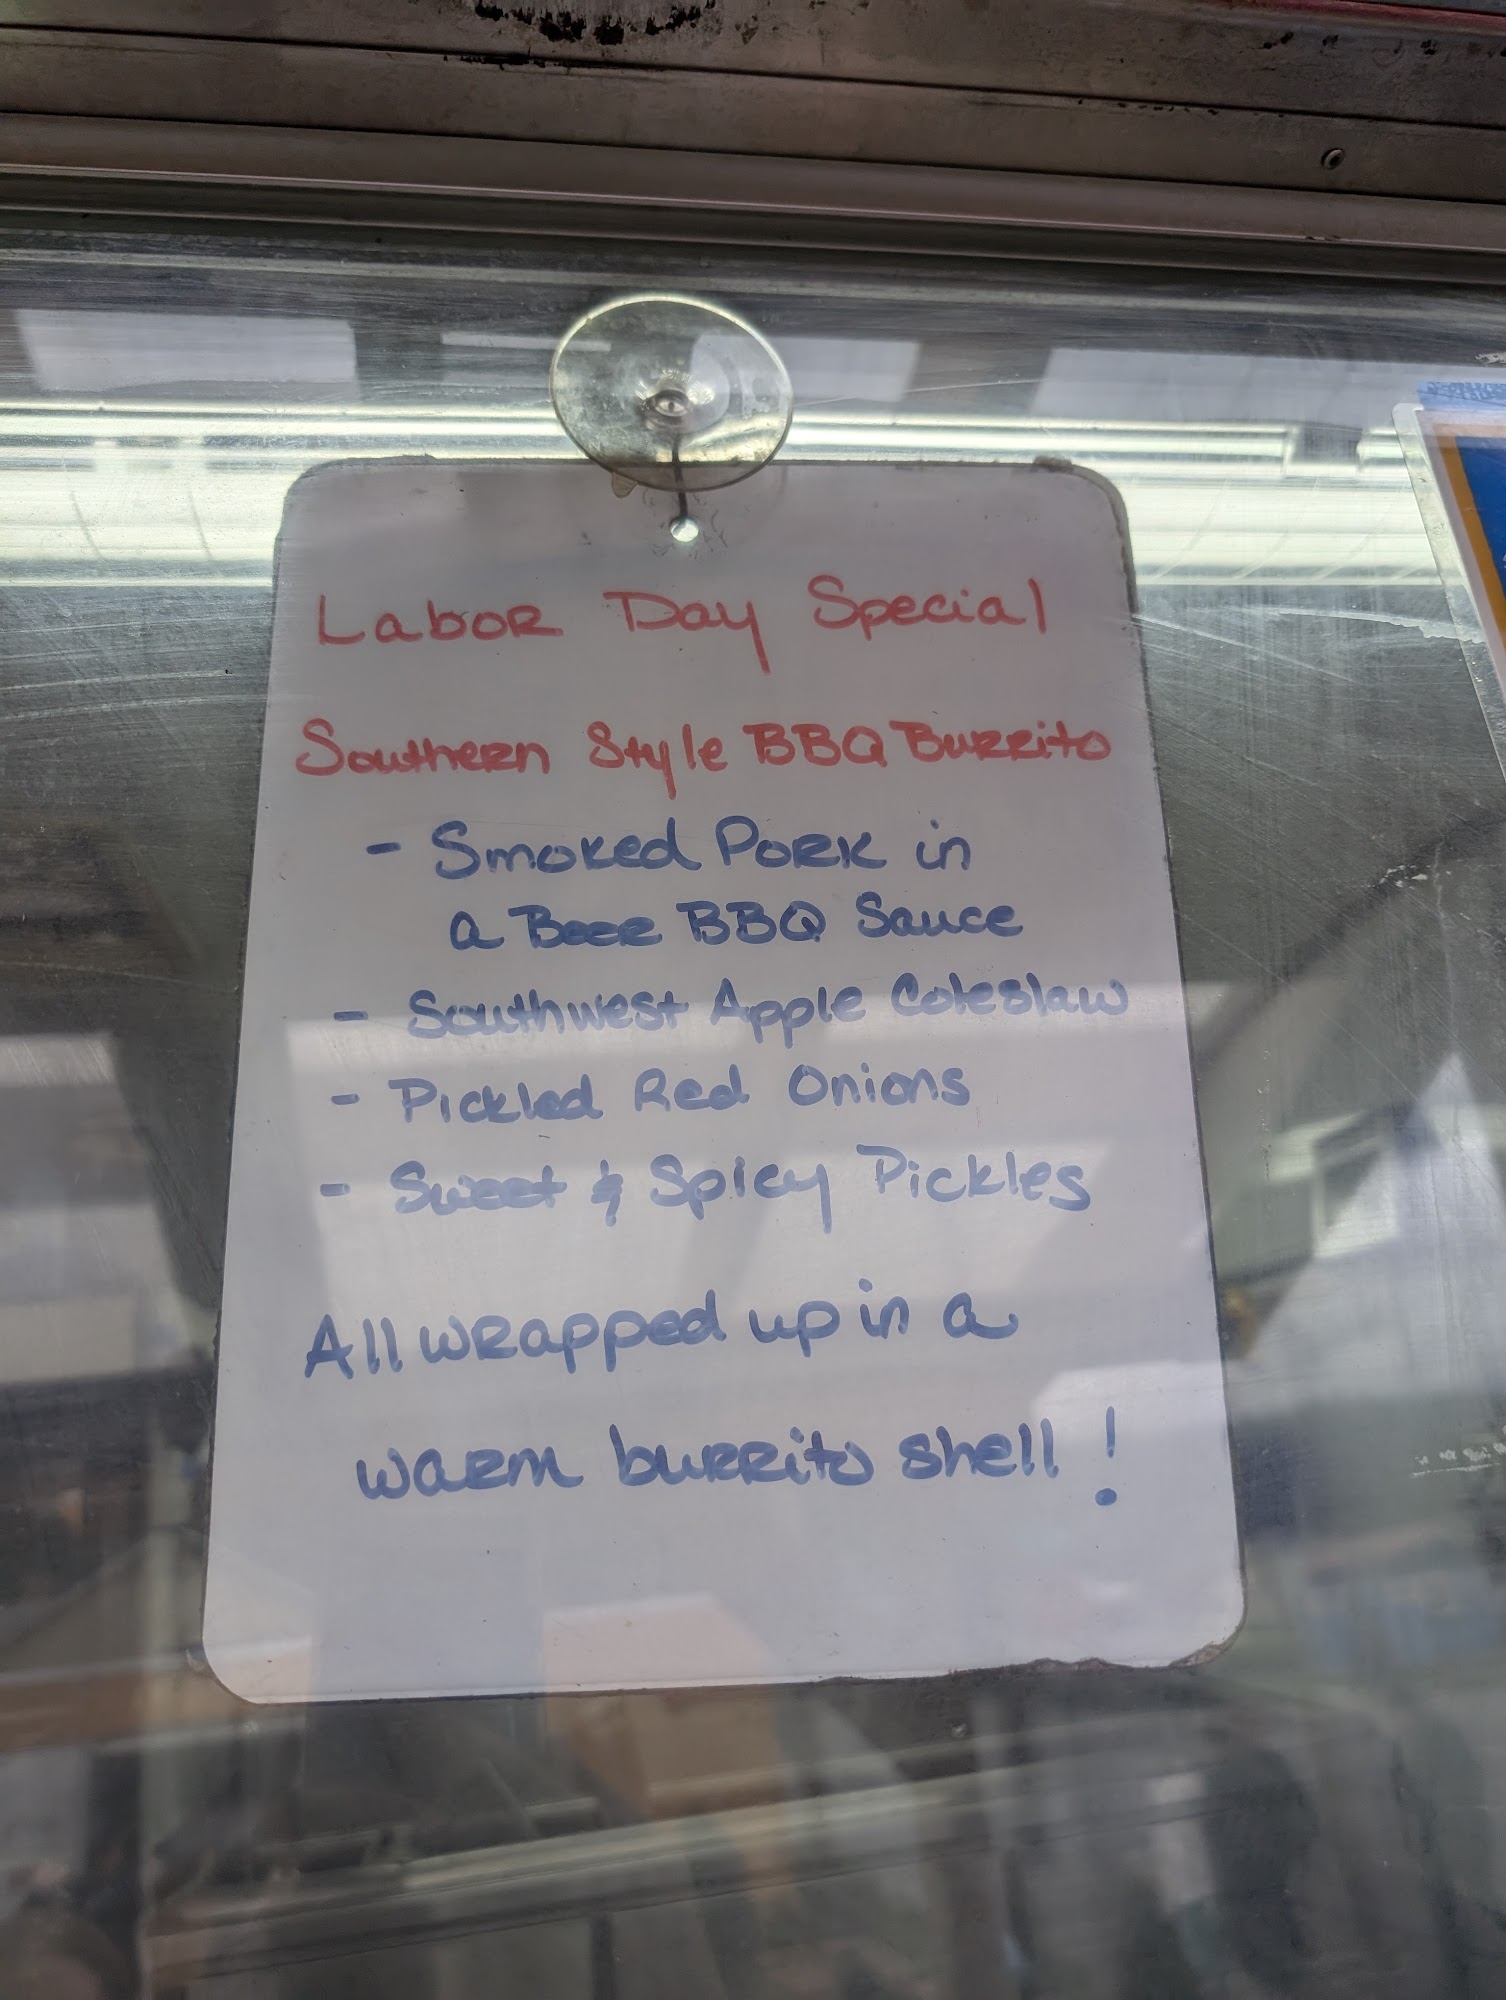 Labor Day Special
Southern Style BBQ Burrito
- Smoked Pork in
a Beer BBQ Sauce
- Southwest Apple Coleslaw
- Pickled Red Onions
- Sweet & Spicy Pickles
All wrapped up in a
warm burrito shell!